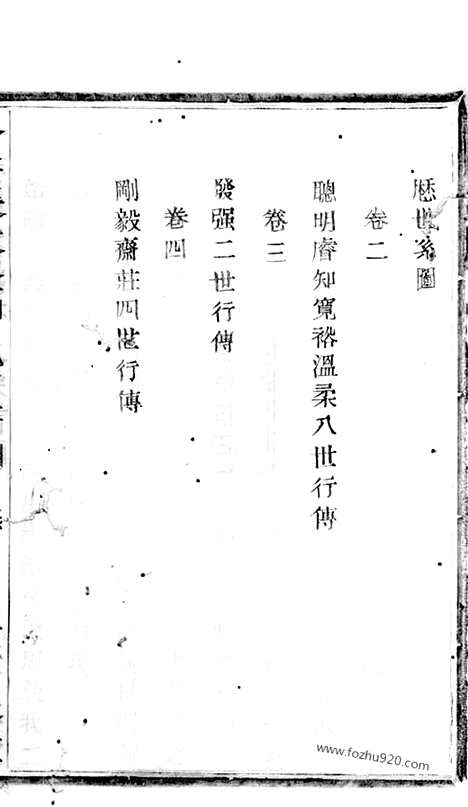 歷世系圖
卷二
聰明睿知寬裕溫柔八世行傳
卷三
發强二世行傳
卷四
剛毅齋莊四世行傳
www.fozhu920.com